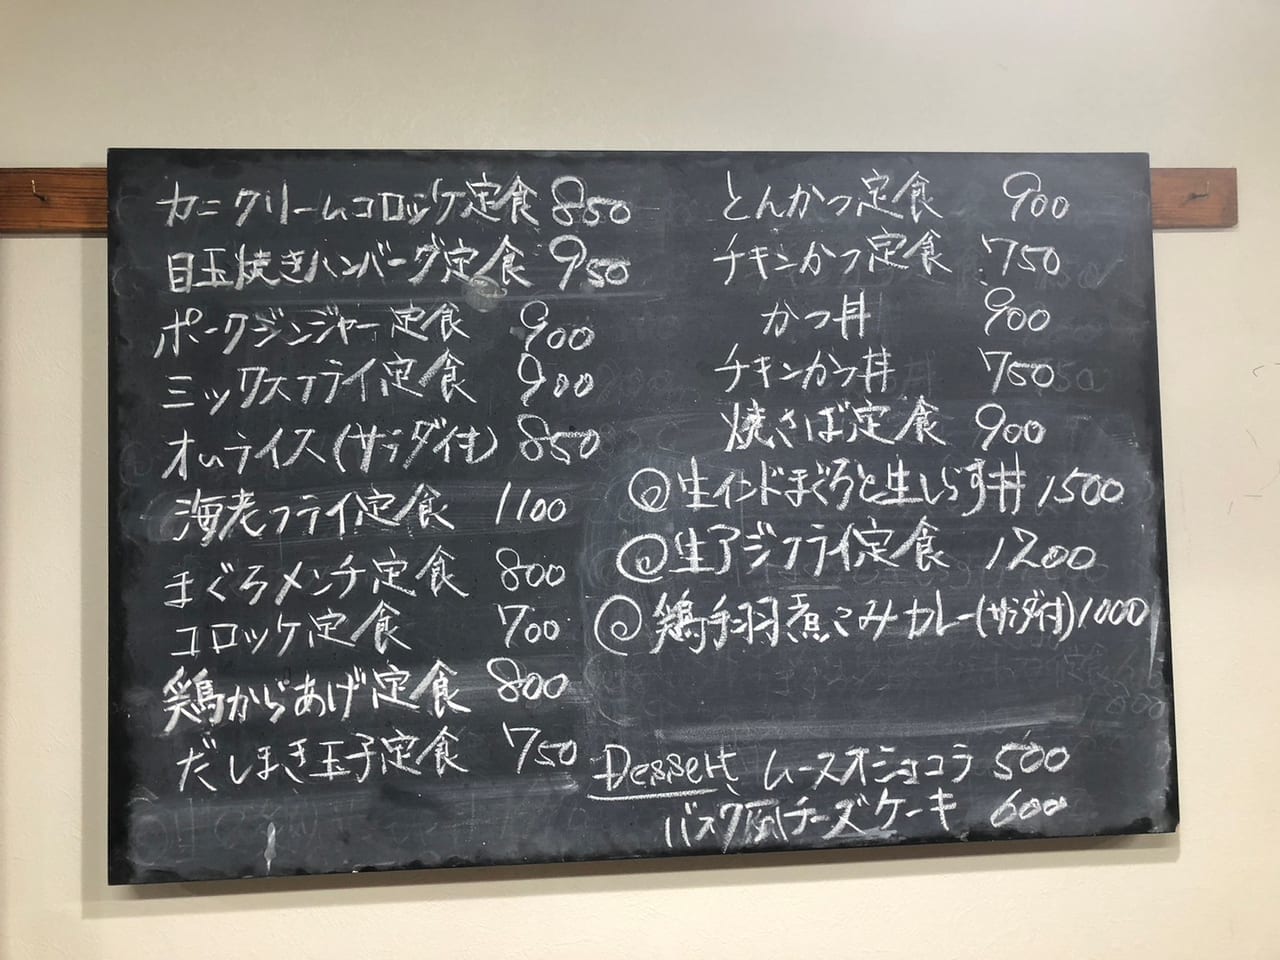 カニクリームコロッケ定食 850
目玉焼きハンバーグ定食 950
ポークジンジャー定食 900
ミックスフライ定食 900
オムライス(サラダ付) 850
海老フライ定食 1100
まぐろメンチ定食 800
コロッケ定食 700
鶏からあげ定食 800
だしまき玉子定食 750
とんかつ定食 900
チキンかつ定食 750
かつ丼 900
チキンかつ丼 750
焼さば定食 900
◎生インドまぐろと生しらす丼 1500
◎生アジフライ定食 1200
◎鶏手羽煮こみカレー(サラダ付) 1000
Dessert ムースオショコラ 500
バスク風チーズケーキ 600